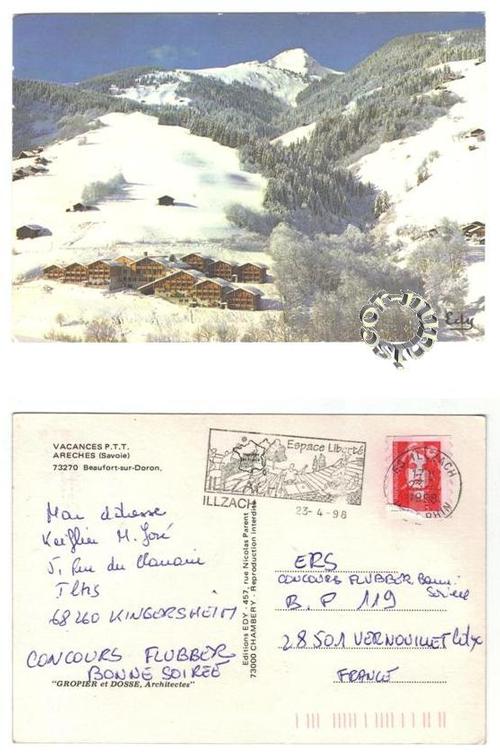 Edy
VACANCES P.T.T.
ARECHES (Savoie)
73270 Beaufort-sur-Doron.
Espace Liberté
ILLZACH
ILLZACH
23-4-98
68 ILLZACH
1998
RHIN
Editions EDY - 457, rue Nicolas Parent
73000 CHAMBERY - Reproduction interdite
Mon adresse
M. José
5, Rue du
68260 KINGERSHEIM
CONCOURS FLUBBER
BONNE SOIRÉE
"GROPIER et DOSSE, Architectes"
ERS
CONCOURS FLUBBER Bonne
Soirée
B.P 119
28501 VERNOUILLET Cdx
FRANCE